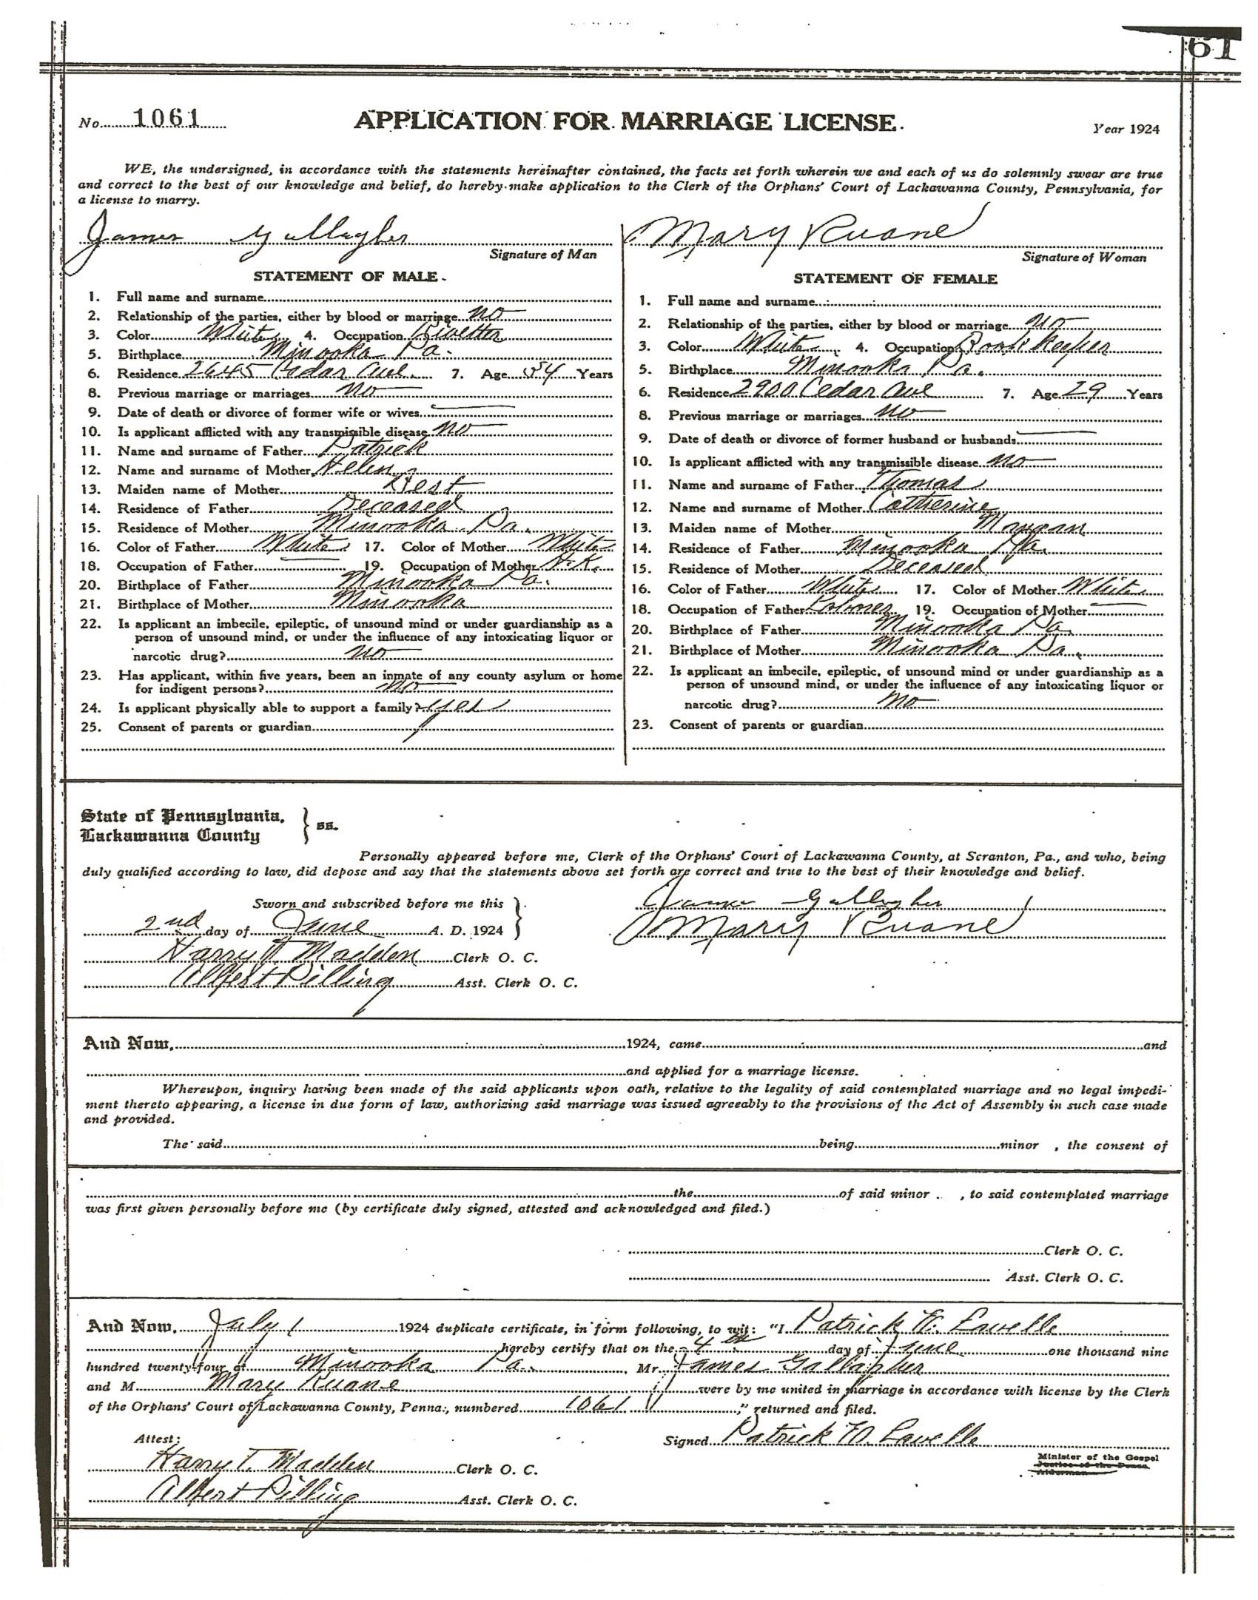 61
No. 1061 APPLICATION FOR MARRIAGE LICENSE. Year 1924
WE, the undersigned, in accordance with the statements hereinafter contained, the facts set forth wherein we and each of us do solemnly swear are true
and correct to the best of our knowledge and belief, do hereby make application to the Clerk of the Orphans' Court of Lackawanna County, Pennsylvania, for
a license to marry.
James Gallagher
Signature of Man
STATEMENT OF MALE.
1. Full name and surname
2. Relationship of the parties, either by blood or marriage no
3. Color White 4. Occupation
5. Birthplace Minooka Pa.
6. Residence 2645 Cedar Ave. 7. Age 34 Years
8. Previous marriage or marriages no
9. Date of death or divorce of former wife or wives
10. Is applicant afflicted with any transmissible disease no
11. Name and surname of Father Patrick
12. Name and surname of Mother Helen
13. Maiden name of Mother
14. Residence of Father Deceased
15. Residence of Mother Minooka Pa.
16. Color of Father White 17. Color of Mother White
18. Occupation of Father 19. Occupation of Mother H.K.
20. Birthplace of Father Minooka Pa.
21. Birthplace of Mother Minooka
22. Is applicant an imbecile, epileptic, of unsound mind or under guardianship as a
person of unsound mind, or under the influence of any intoxicating liquor or
narcotic drug? no
23. Has applicant, within five years, been an inmate of any county asylum or home
for indigent persons? no
24. Is applicant physically able to support a family? yes
25. Consent of parents or guardian
Mary Ruane
Signature of Woman
STATEMENT OF FEMALE
1. Full name and surname
2. Relationship of the parties, either by blood or marriage no
3. Color White 4. Occupation Book Keeper
5. Birthplace Minooka Pa.
6. Residence 2900 Cedar Ave 7. Age 29 Years
8. Previous marriage or marriages no
9. Date of death or divorce of former husband or husbands
10. Is applicant afflicted with any transmissible disease no
11. Name and surname of Father Thomas
12. Name and surname of Mother Catherine
13. Maiden name of Mother Mangan
14. Residence of Father Minooka Pa.
15. Residence of Mother Deceased
16. Color of Father White 17. Color of Mother White
18. Occupation of Father 19. Occupation of Mother
20. Birthplace of Father Minooka Pa.
21. Birthplace of Mother Minooka Pa.
22. Is applicant an imbecile, epileptic, of unsound mind or under guardianship as a
person of unsound mind, or under the influence of any intoxicating liquor or
narcotic drug? no
23. Consent of parents or guardian
State of Pennsylvania,
Lackawanna County } ss.
Personally appeared before me, Clerk of the Orphans' Court of Lackawanna County, at Scranton, Pa., and who, being
duly qualified according to law, did depose and say that the statements above set forth are correct and true to the best of their knowledge and belief.
Sworn and subscribed before me this
2nd day of June A. D. 1924
Harry T. Madden Clerk O. C.
Albert Pilling Asst. Clerk O. C.
James Gallagher
Mary Ruane
And Now, 1924, came and
and applied for a marriage license.
Whereupon, inquiry having been made of the said applicants upon oath, relative to the legality of said contemplated marriage and no legal impedi-
ment thereto appearing, a license in due form of law, authorizing said marriage was issued agreeably to the provisions of the Act of Assembly in such case made
and provided.
The said being minor , the consent of
the of said minor , to said contemplated marriage
was first given personally before me (by certificate duly signed, attested and acknowledged and filed.)
Clerk O. C.
Asst. Clerk O. C.
And Now, July 1 1924 duplicate certificate, in form following, to wit: "I Patrick W. Lavelle
hereby certify that on the 4th day of June one thousand nine
hundred twenty four at Minooka Pa. Mr. James Gallagher
and M Mary Ruane were by me united in marriage in accordance with license by the Clerk
of the Orphans' Court of Lackawanna County, Penna., numbered 1061," returned and filed.
Attest: Signed Patrick W. Lavelle
Harry T. Madden Clerk O. C.
Albert Pilling Asst. Clerk O. C.
Minister of the Gospel
Justice of the Peace
Alderman